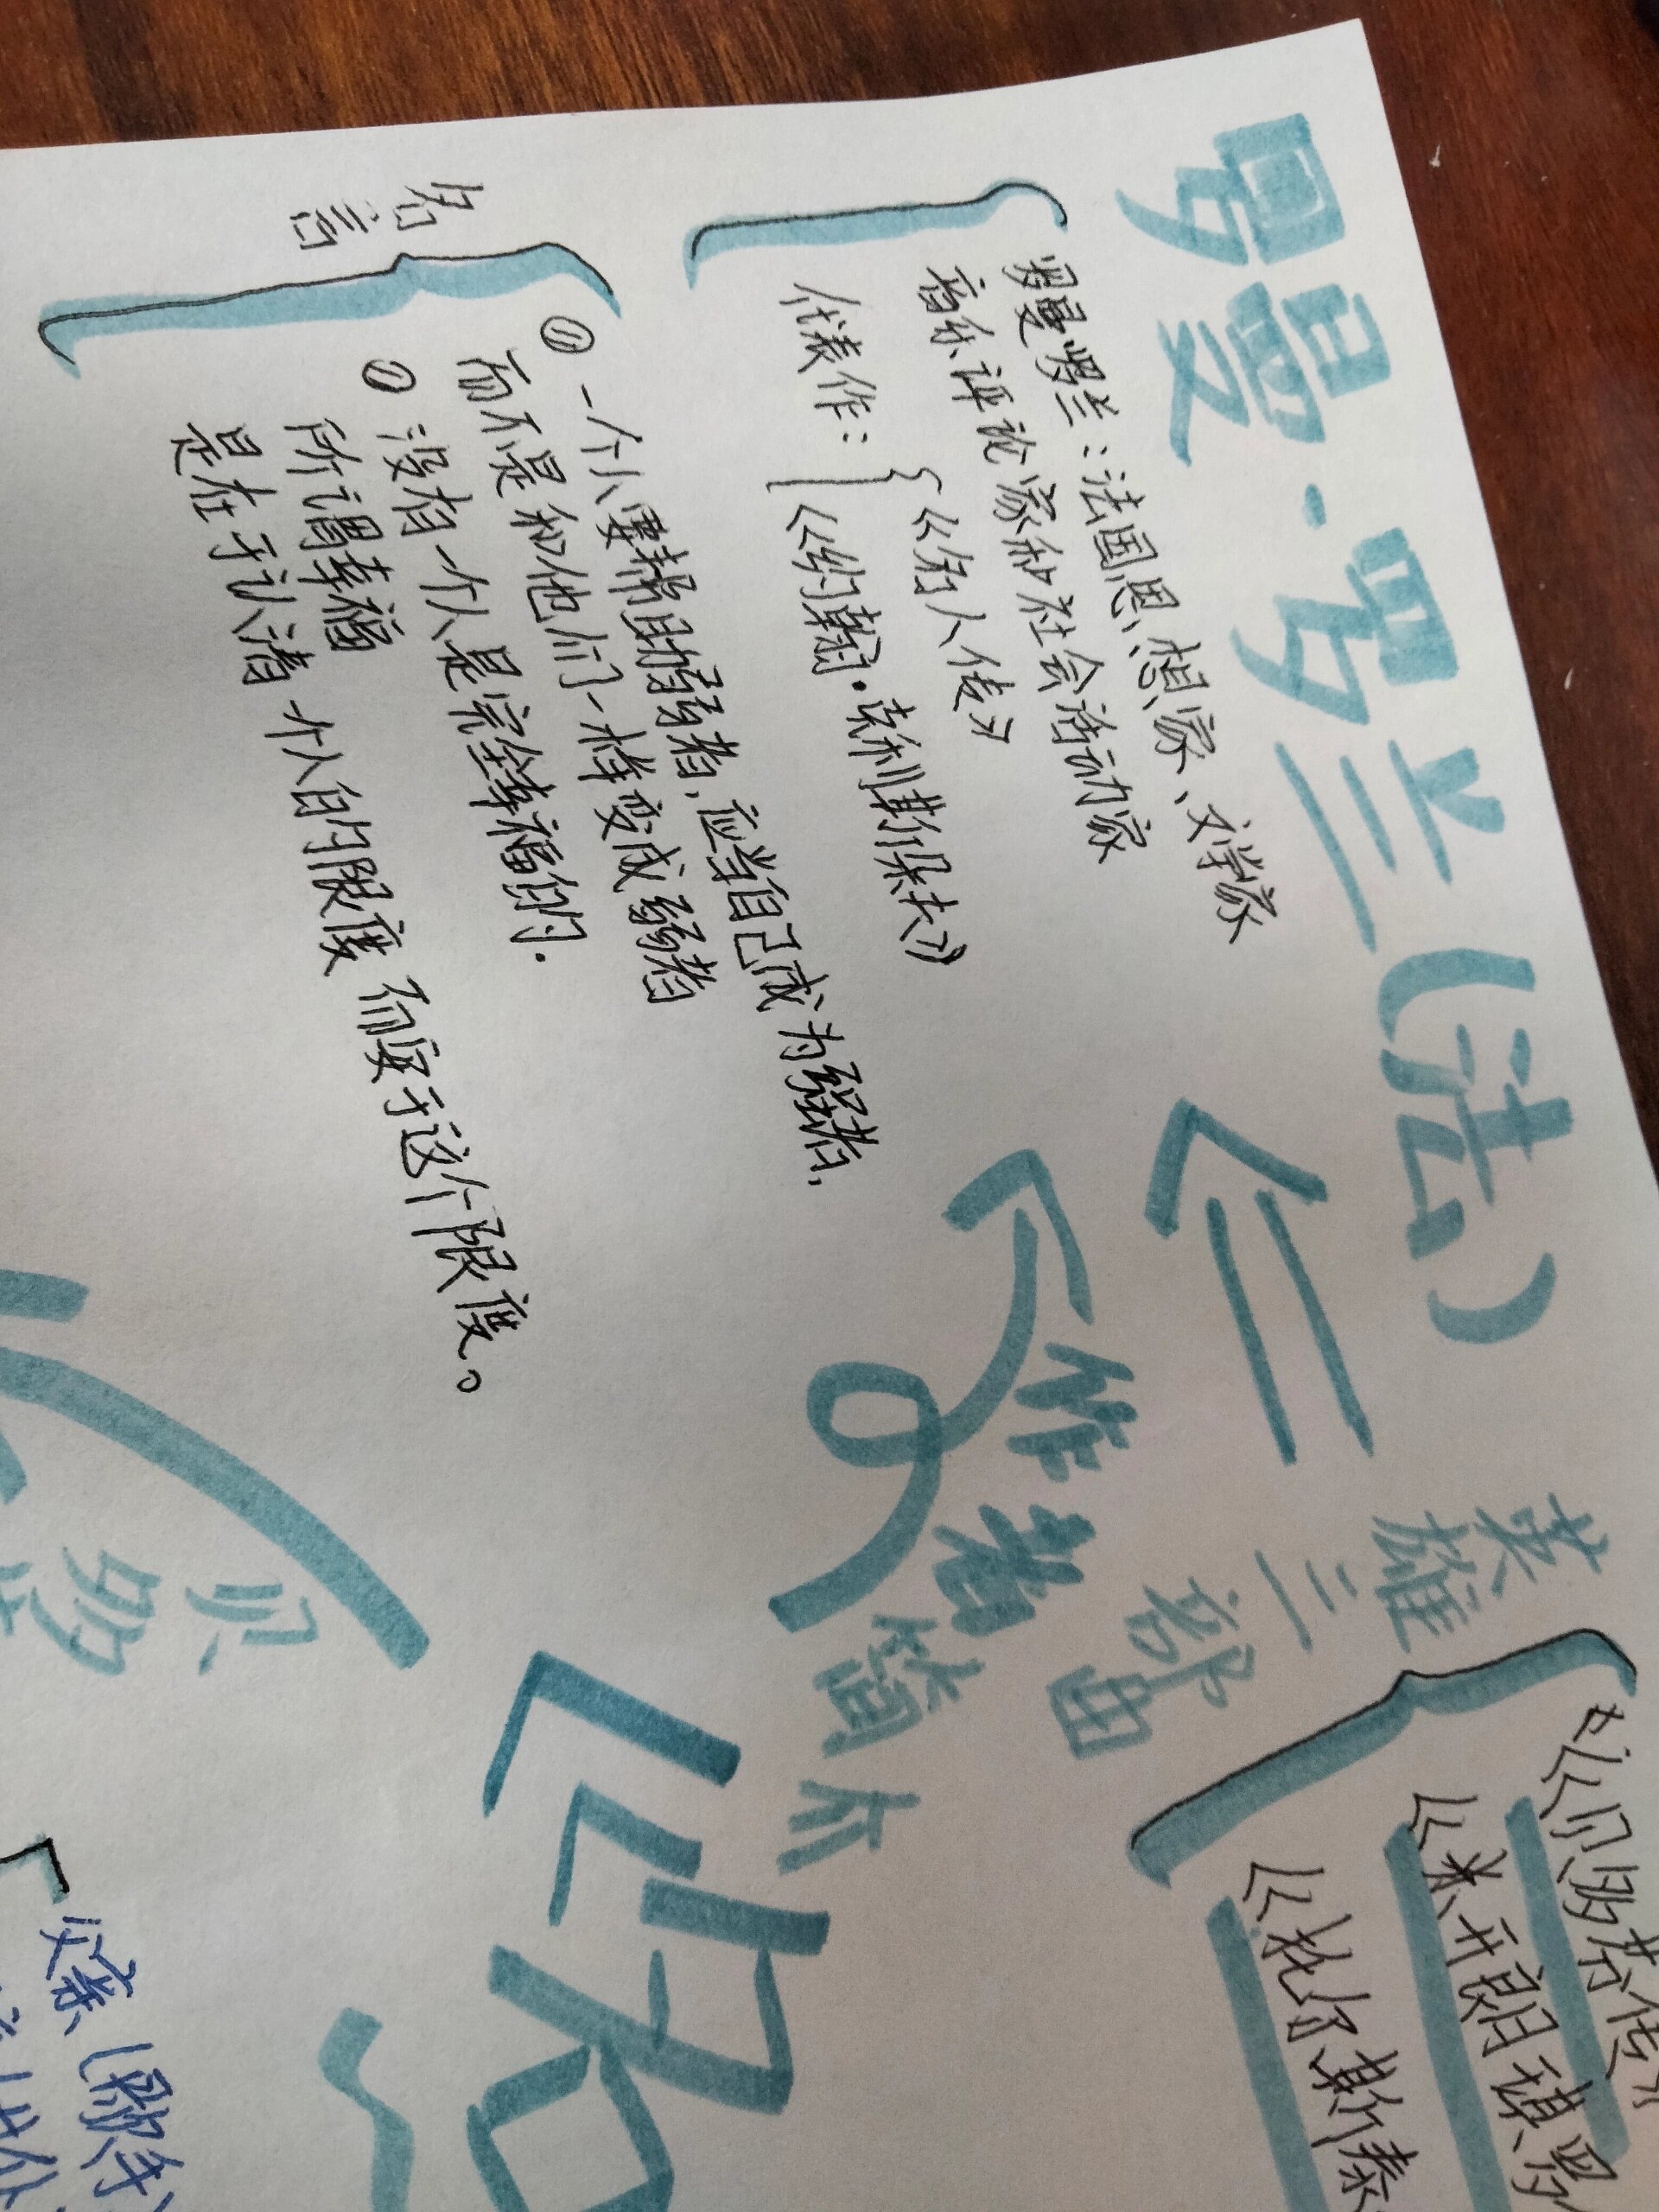 罗曼·罗兰(法)
罗曼罗兰：法国思想家、文学家
音乐评论家和社会活动家
代表作：
《名人传》
《约翰·克利斯朵夫》
名言
① 一个人要帮助弱者，应当自己成为强者，
而不是和他们一样变成弱者
② 没有一个人是完全幸福的.
所谓幸福
是在于认清一个人的限度而安于这个限度。
作者简介
英雄三部曲
《贝多芬传》
《米开朗琪罗
《托尔斯泰
《名
贝多
父亲（歌手